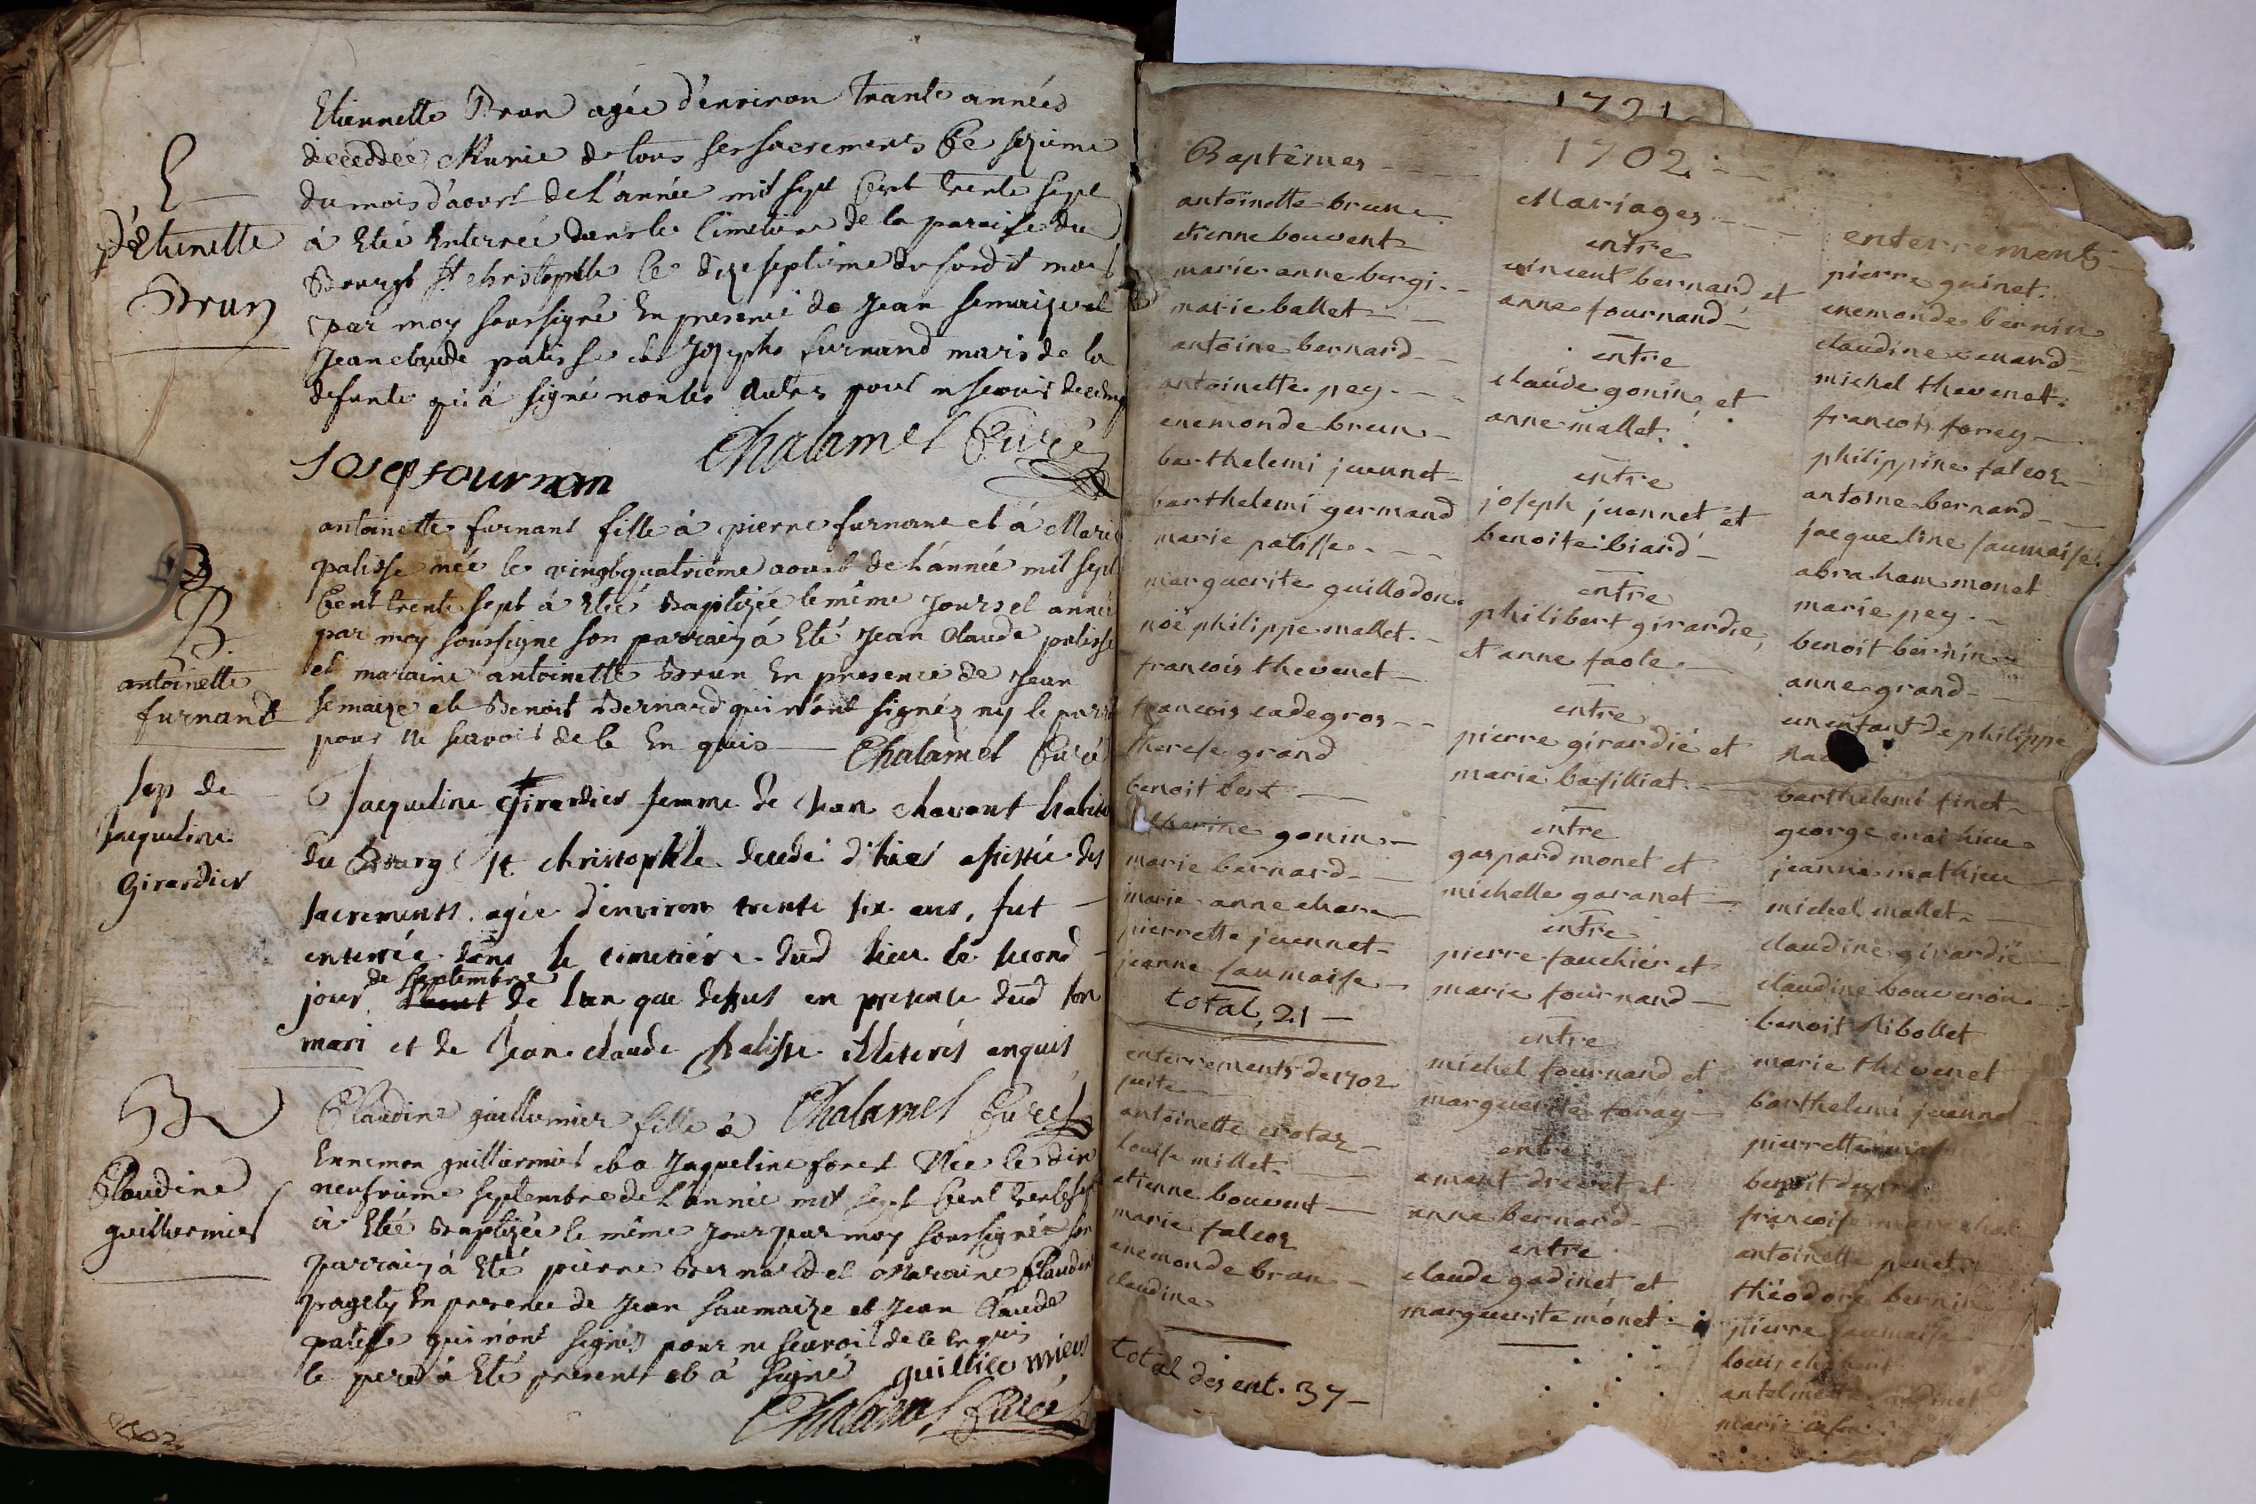 E
d'Etienette
Brun
Etiennette Brun agée d'environ trante années
deceddée Munie de tous ses sacrements Ce sezieme
du mois d'aoust de l'année mil sept Cent trente sept
à Eté Enterrée dans le Cimetiere de la paroisse du
Bourgt st christophle le dizeseptieme du susdit mois
par moy soussigné En presence de Jean semaize et
Jean claude palisse et Joseph furnand maris de la
defunte qui à signé non les autres pour n scavoir de
Chalamel Curé
Josep fournan
B
antoinette
furnand
antoinette furnant fille à pierre furnant et à Marie
palisse née le vingtquatrieme aoust de l'année mil sept
Cent trente sept à Eté Baptizée le même Jours et année
par moy soussigne son parrain à Eté Jean Claude palisse
et maraine antoinette Brun En presence de Jean
semaize et Benoit Bernard qui n'ont signéz ny le parrain
pour ne scavoir de ce En quis Chalamel Curé
sep de
Jacqueline
Girardier
Jacqueline Girardier femme de Jean chavant habitant
du Bourg st christophle decedé d'hier assistée des
sacrements agée d'environ trente six ans, fut
enterrée dans le cimetière dud lieu le second
de septembre
jour de l'an que dessus en presence dud son
mari et de Jean claude Palisse illiterés enquis
Chalamel Curé
B
Claudine
guillermier
Claudine guillermier fille à
Ennemon guillermier et a Jaqueline foret Née le dix
neufvieme septembre de l'année mil sept Cent trente sept
à Eté Baptizée le même Jour par moy soussigné son
parrain à Eté pierre Bernard et Maraine Claudine
pagety En presence de Jean saumaize et Jean Claude
palisse qui n'ont signés pour ne scavoir de ce Enquis
le pere à Eté present et à signé guilliermier
Chalamel Curé
1721
1702
Baptêmes
antoinette brune
etienne bouvent
marie anne bergi
marie ballet
antoine bernard
antoinette pey
enemonde brun
barthelemi juennet
barthelemi germand
marie palisse
marguerite guillodon
noë philippe mallet
francois thevenet
francois cadegros
therese grand
benoit bert
gonin
marie bernard
marie anne chara
pierrette juennet
jeanne saumaise
total, 21
enterrements de 1702
suite
antoinette crotaz
louise millet
etienne bouvent
marie falcoz
enemonde brun
claudine
total des ent. 37
Mariages
entre
vincent bernard et
anne fournand
entre
claude gonin et
anne mallet
entre
joseph juennet et
benoite biard
entre
philibert girardie,
et anne faole
entre
pierre girardié et
marie basilliat
entre
gaspard monet et
michelle garanet
entre
pierre fauchier et
marie fournand
entre
michel fournand et
marguerite foray
entre
amant drevet et
anne bernard
entre
claude gadinet et
marguerite monet
enterrements
pierre guinet
enemonde bernin
claudine renard
michel thevenet
francois forey
philippine falcoz
antoine bernard
jacqueline saumaise
abraham monet
marie pey
benoit bernin
anne grand
un enfant de philippe
barthelemi finet
george mathieu
jeanne mathieu
michel mallet
claudine girardié
claudine bouveron
benoit Ribollet
marie thevenet
barthelemi juennet
pierrette
benoit
francoise
antoinette penet
théodore bernin
pierre saumaise
louis
marie